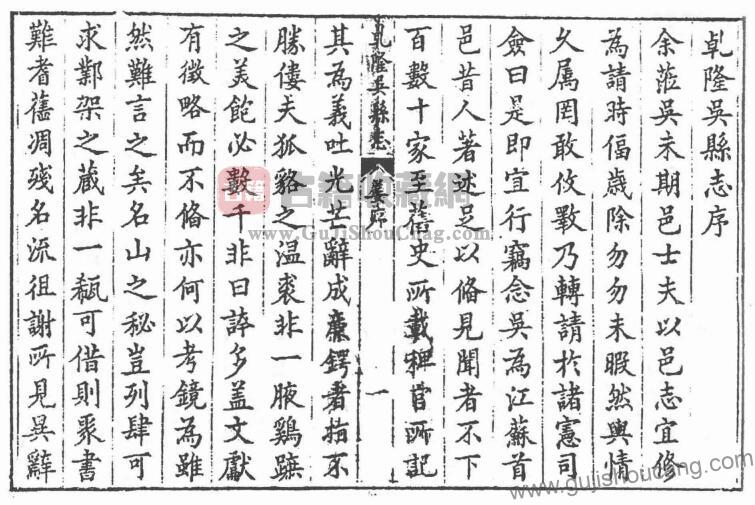 乹隆吳縣志序
余蒞吳未期邑士夫以邑志宜修
為請時偪歲除勿勿未暇然輿情
久属罔敢攸斁乃轉請於諸憲司
僉曰是即宜行竊念吳為江蘇首
邑昔人著述足以俻見聞者不下
百數十家至舊史所載稗官所記
乹隆吳縣志 姜序 一
其為義吐光芒辭成廉鍔者指不
勝僂夫狐貉之温裘非一腋鷄蹠
之美飽必數千非曰誇多盖文獻
有徵略而不俻亦何以考鏡為雖
然難言之矣名山之秘豈列肆可
求鄴架之蔵非一瓻可借則聚書
難者舊凋殘名流徂謝所見異辭
古籍收藏網
www.GuJiShouCang.com
www.gujishoucang.com